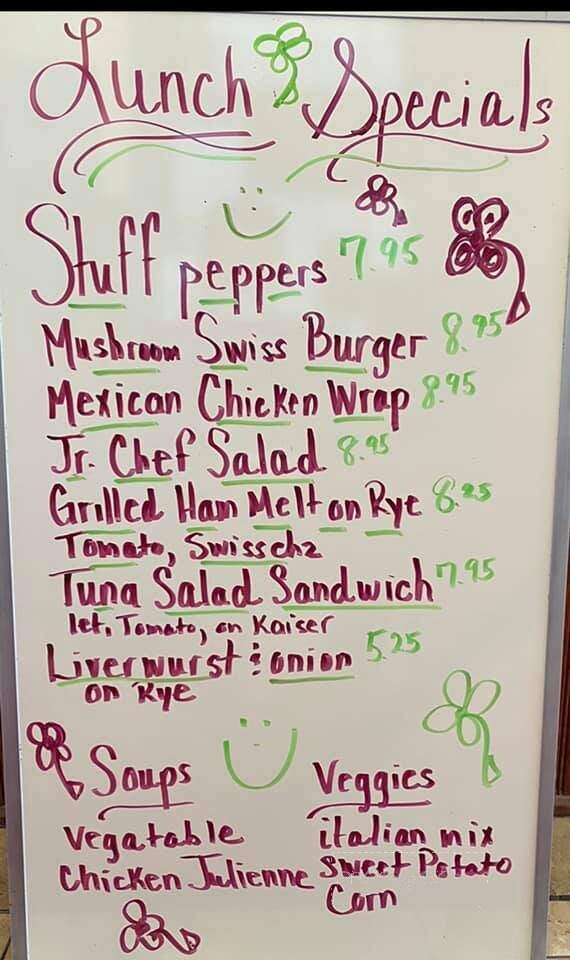 Lunch Specials
Stuff peppers 7.95
Mushroom Swiss Burger 8.95
Mexican Chicken Wrap 8.95
Jr. Chef Salad 8.95
Grilled Ham Melt on Rye 8.25
Tomato, Swiss chz
Tuna Salad Sandwich 7.95
let, Tomato, on Kaiser
Liverwurst & onion 5.25
on Rye
Soups
Vegatable
Chicken Julienne
Veggies
italian mix
Sweet Potato
Corn